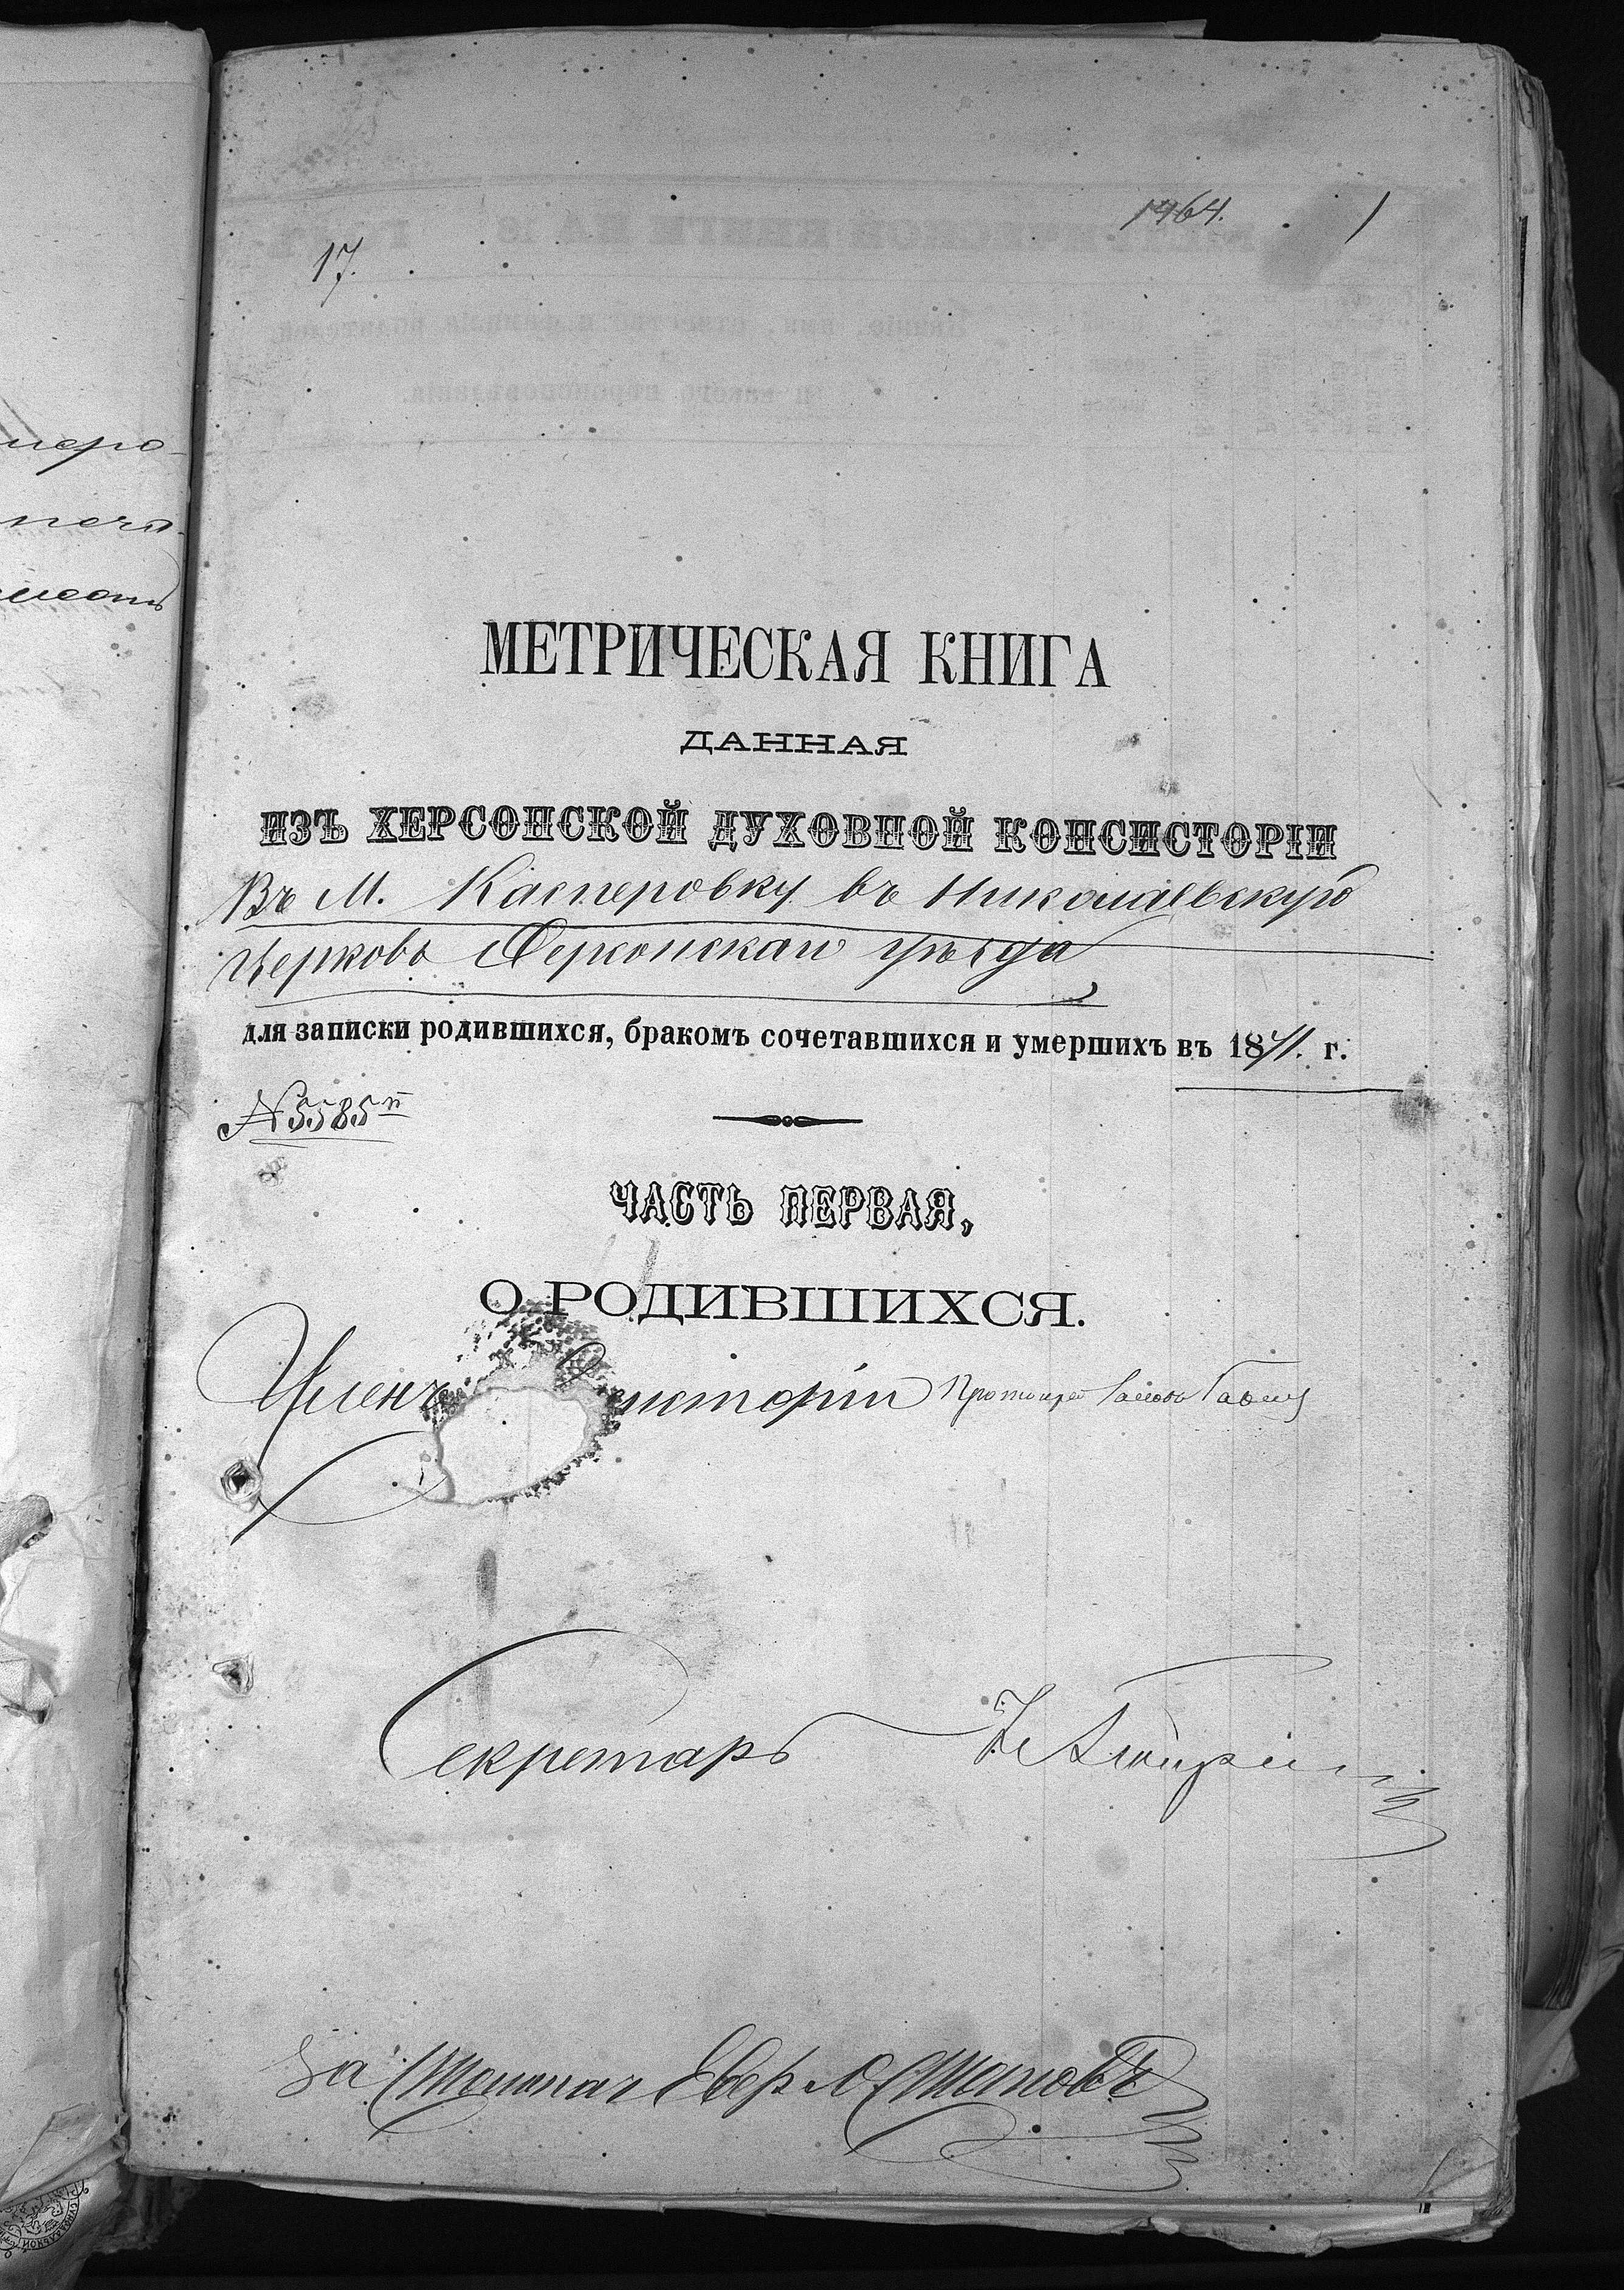 меро-
1464. 1
17.
МЕТРИЧЕСКАЯ КНИГА
ДАННАЯ
ИЗЪ ХЕРСОНСКОЙ ДУХОВНОЙ КОНСИСТОРІИ
Въ М. Касперовку въ Николаевскую
церковь Херсонскаго уѣзда
для записки родившихся, бракомъ сочетавшихся и умершихъ въ 1871. г.
№ 5585
ЧАСТЬ ПЕРВАЯ,
О РОДИВШИХСЯ.
Членъ систоріи Протоіерей
Секретарь
За